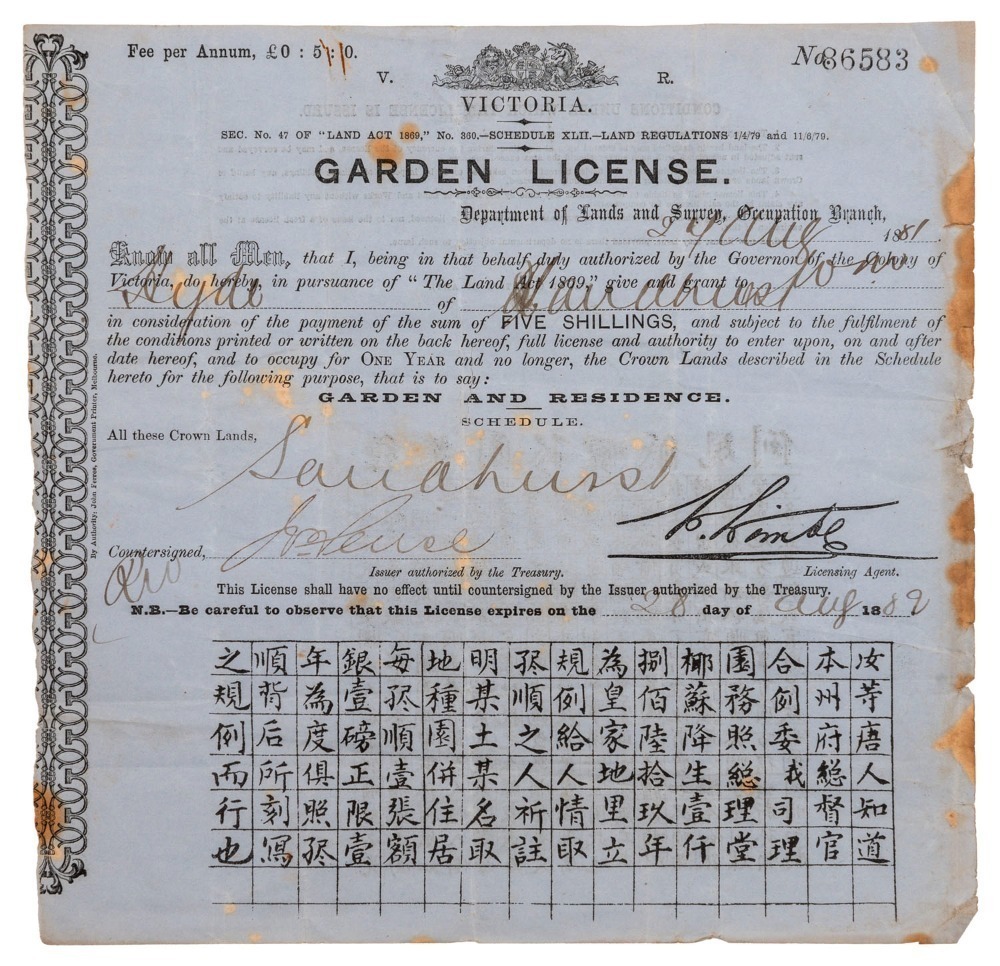 Fee per Annum, £0 : 5 : 0.
No. 36583
V. R.
VICTORIA.
SEC. No. 47 OF "LAND ACT 1869," No. 360.—SCHEDULE XLII.—LAND REGULATIONS 1/4/79 and 11/6/79.
GARDEN LICENSE.
Department of Lands and Survey, Occupation Branch,
29 Aug 1881.
Know all Men, that I, being in that behalf duly authorized by the Governor of the colony of
Victoria, do hereby, in pursuance of "The Land Act 1869," give and grant to
Hyde of Sandhurst
in consideration of the payment of the sum of FIVE SHILLINGS, and subject to the fulfilment of
the conditions printed or written on the back hereof, full license and authority to enter upon, on and after
date hereof, and to occupy for ONE YEAR and no longer, the Crown Lands described in the Schedule
hereto for the following purpose, that is to say:
GARDEN AND RESIDENCE.
SCHEDULE.
All these Crown Lands,
Sandhurst
Countersigned,
Issuer authorized by the Treasury.
Licensing Agent.
This License shall have no effect until countersigned by the Issuer authorized by the Treasury.
N.B.—Be careful to observe that this License expires on the 28 day of Aug 1882
By Authority: John Ferres, Government Printer, Melbourne.
汝等唐人知道
本州府總督官
合例委我司理
園務照総理堂
椰蘇降生壹仟
捌佰陸拾玖年
為皇家地里立
規例給人情取
孫順之人祈註
明某土某名取
地種園併住居
每孫順壹張額
銀壹磅正限壹
年為度俱照孫
順背后所刻寫
之規例而行也